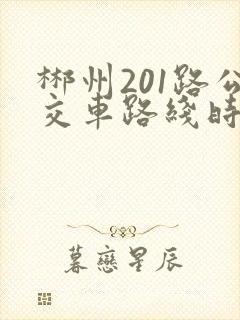 郴州201路公
交車路綫時
暮戀星辰